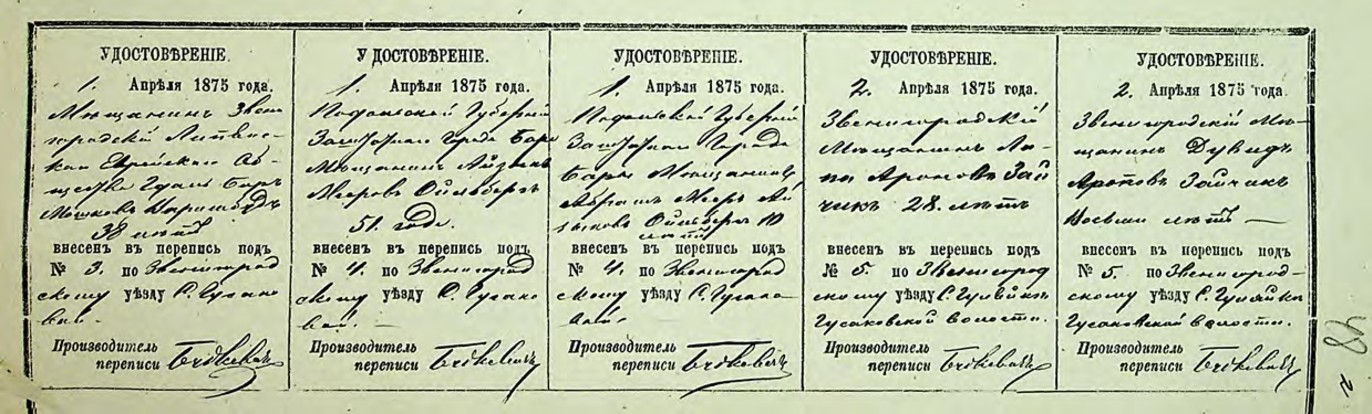 УДОСТОВѢРЕНІЕ.
1. Апрѣля 1875 года.
Мѣщанинъ Звени
городскій
кой Еврейскаго Об-
щества
Мошковъ
38 лѣтъ
внесенъ въ перепись подъ
№ 3. по Звенигород
скому уѣзду С. Гусако
вой.
Производитель
переписи
УДОСТОВѢРЕНІЕ.
1. Апрѣля 1875 года.
Подольской Губерніи
Заштатнаго Города Бара
Мѣщанинъ Айзикъ
Мееровъ Ойльбергъ
51. годъ.
внесенъ въ перепись подъ
№ 4. по Звенигород
скому уѣзду С. Гусако
вой.
Производитель
переписи
УДОСТОВѢРЕНІЕ.
1. Апрѣля 1875 года.
Подольской Губерніи
Заштатнаго Города
Бары Мѣщанинъ
Абрамъ Мееръ Ай
зиковъ Ойльбергъ 10
лѣтъ
внесенъ въ перепись подъ
№ 4. по Звенигород
скому уѣзду С. Гусако-
вой.
Производитель
переписи
УДОСТОВѢРЕНІЕ.
2. Апрѣля 1875 года.
Звенигородскій
Мѣщанинъ
Ароновъ Зай
чикъ 28. лѣтъ
внесенъ въ перепись подъ
№ 5. по Звенигород
скому уѣзду С.
Гусаковской волости.
Производитель
переписи
УДОСТОВѢРЕНІЕ.
2. Апрѣля 1875 года.
Звенигородскій Мѣ-
щанинъ Дувидъ
Ароновъ Зайчикъ
Восьми лѣтъ —
внесенъ въ перепись подъ
№ 5. по Звенигород-
скому уѣзду С.
Гусаковской волости.
Производитель
переписи